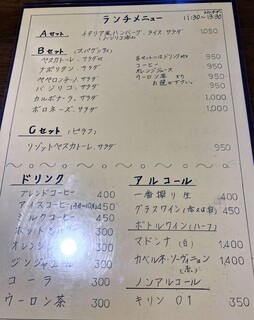 ランチメニュー
11:30〜13:30
Aセット イタリア風ハンバーグ、ライス、サラダ 1,050
Bセット (スパゲッティ)
ペスカトーレ、サラダ 950
ナポリタン、サラダ 950
ペペロンチーノ、サラダ 950
バジリコ、サラダ 950
カルボナーラ、サラダ 1,000
ボロネーズ、サラダ 950
コーヒー
オレンジジュース
ウーロン茶 より
お選び下さい
Cセット (ピラフ)
リゾットペスカトーレ、サラダ 950
ドリンク
ブレンドコーヒー 400
アイスコーヒー 450
ミルクコーヒー 450
300
300
ジンジャエール 300
コーラ 300
ウーロン茶 300
アルコール
一番搾り生 400
グラスワイン 450
ボトルワイン(ハーフ)
マドンナ (白) 1,400
カベルネ・ソーヴィニョン (赤) 1,400
ノンアルコール
キリン 01 350